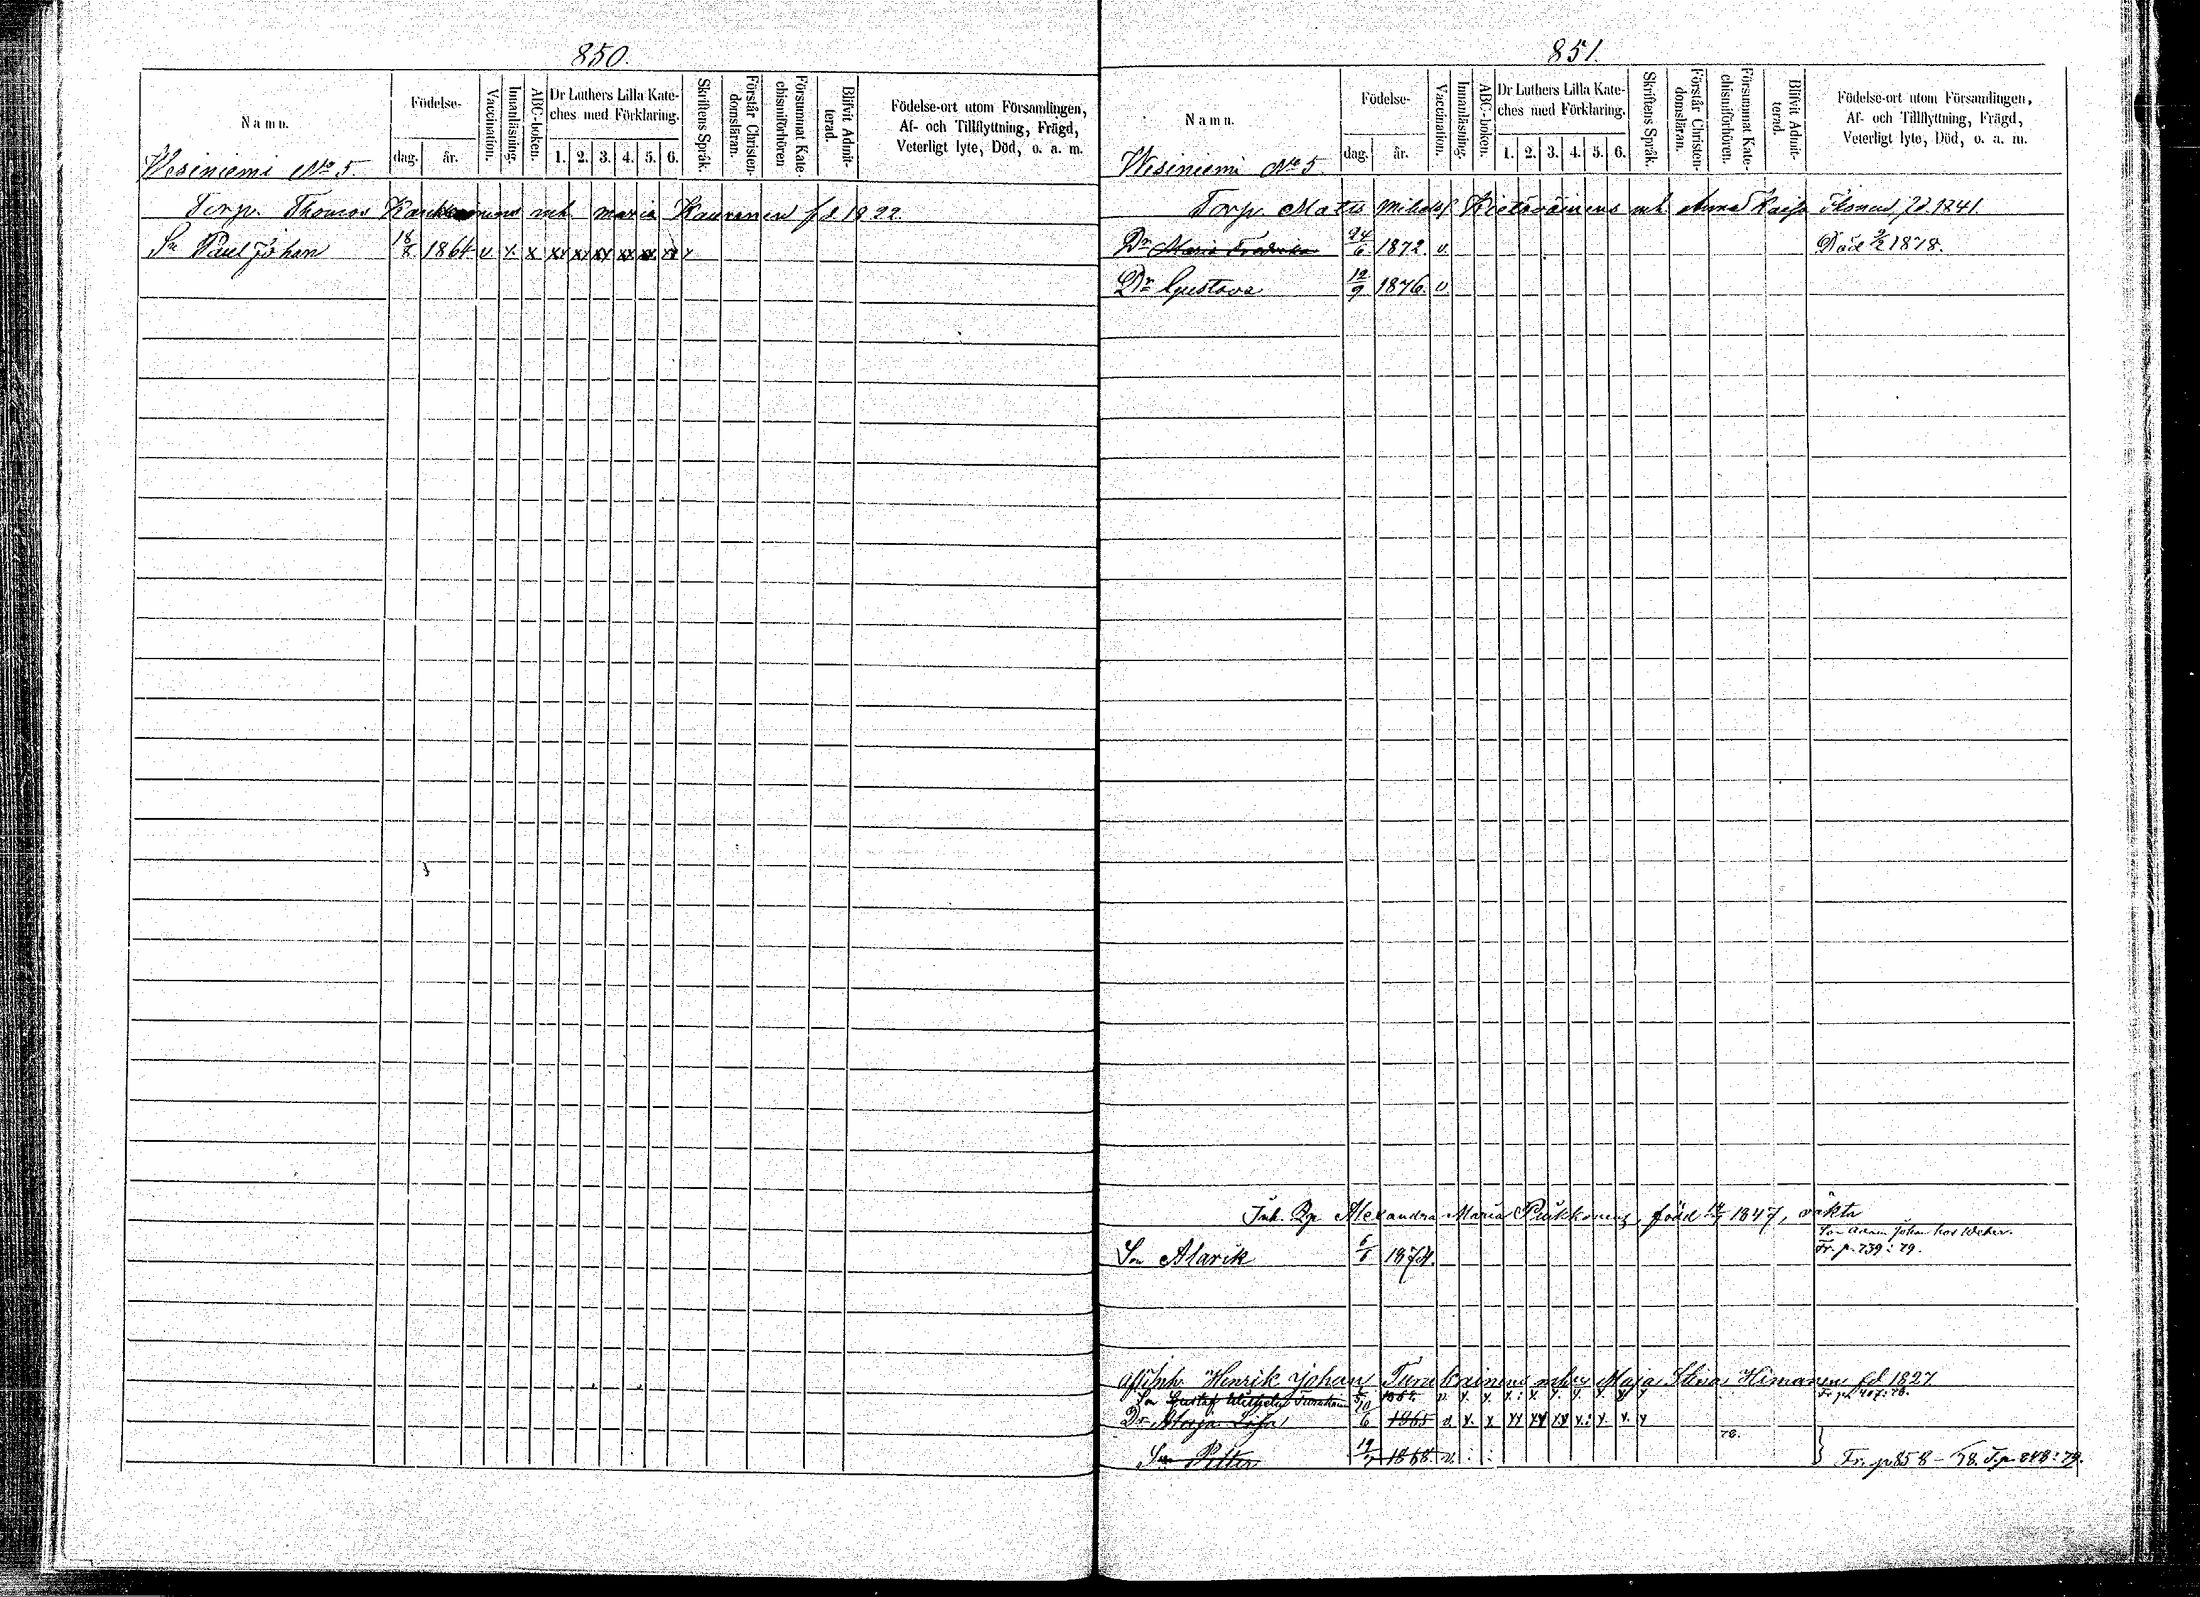 850.
Namn.
Födelse-
dag.
år.
Vaccination.
Innanläsning.
ABC-boken.
Dr Luthers Lilla Kate-
ches med Förklaring.
1. 2. 3. 4. 5. 6.
Skriftens Språk.
Förstår Christen-
domsläran.
Försummat Kate-
chismiförhören
Blifvit Admit-
terad.
Födelse-ort utom Församlingen,
Af- och Tillflyttning, Frägd,
Veterligt lyte, Död, o. a. m.
Wesiniemi No 5.
Torp. Thomas mh. Maria Kauranen fd 1822.
Sn Paul Johan 18/8 1864 v x x xx xx xx xx xx
851.
Namn.
Födelse-
dag.
år.
Vaccination.
Innanläsning.
ABC-boken.
Dr Luthers Lilla Kate-
ches med Förklaring.
1. 2. 3. 4. 5. 6.
Skriftens Språk.
Förstår Christen-
domsläran.
Försummat Kate-
chismiförhören.
Blifvit Admit-
terad.
Födelse-ort utom Församlingen,
Af- och Tillflyttning, Frägd,
Veterligt lyte, Död, o. a. m.
Wesiniemi No 5.
Torp. Mats mh. Anna Kaisa fd. 1841.
Dr Maria Fredrika 24/6 1872. v. Död 9/2 1878.
Dr Gustava 12/9 1876. v
Inh. Alexandra Maria född 1847, oäkta
Son Johan hos
Fr. p. 739: 79.
Son Alarik 6/6 1874.
Henrik Johan Maja Stina Himanen fd 1827
Son Gustaf Wilhelm v. x. x. x. x. x. x. x x
Dr Maja Lisa 6 1865 v. x. x xx xx xx x. x x. x
78.
Son Petter 19/7 1868. v. Fr. p 858 - 78.